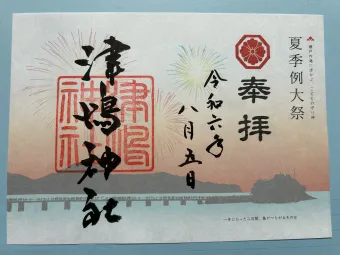 夏季例大祭
奉拝
令和六年
八月五日
津嶋神社